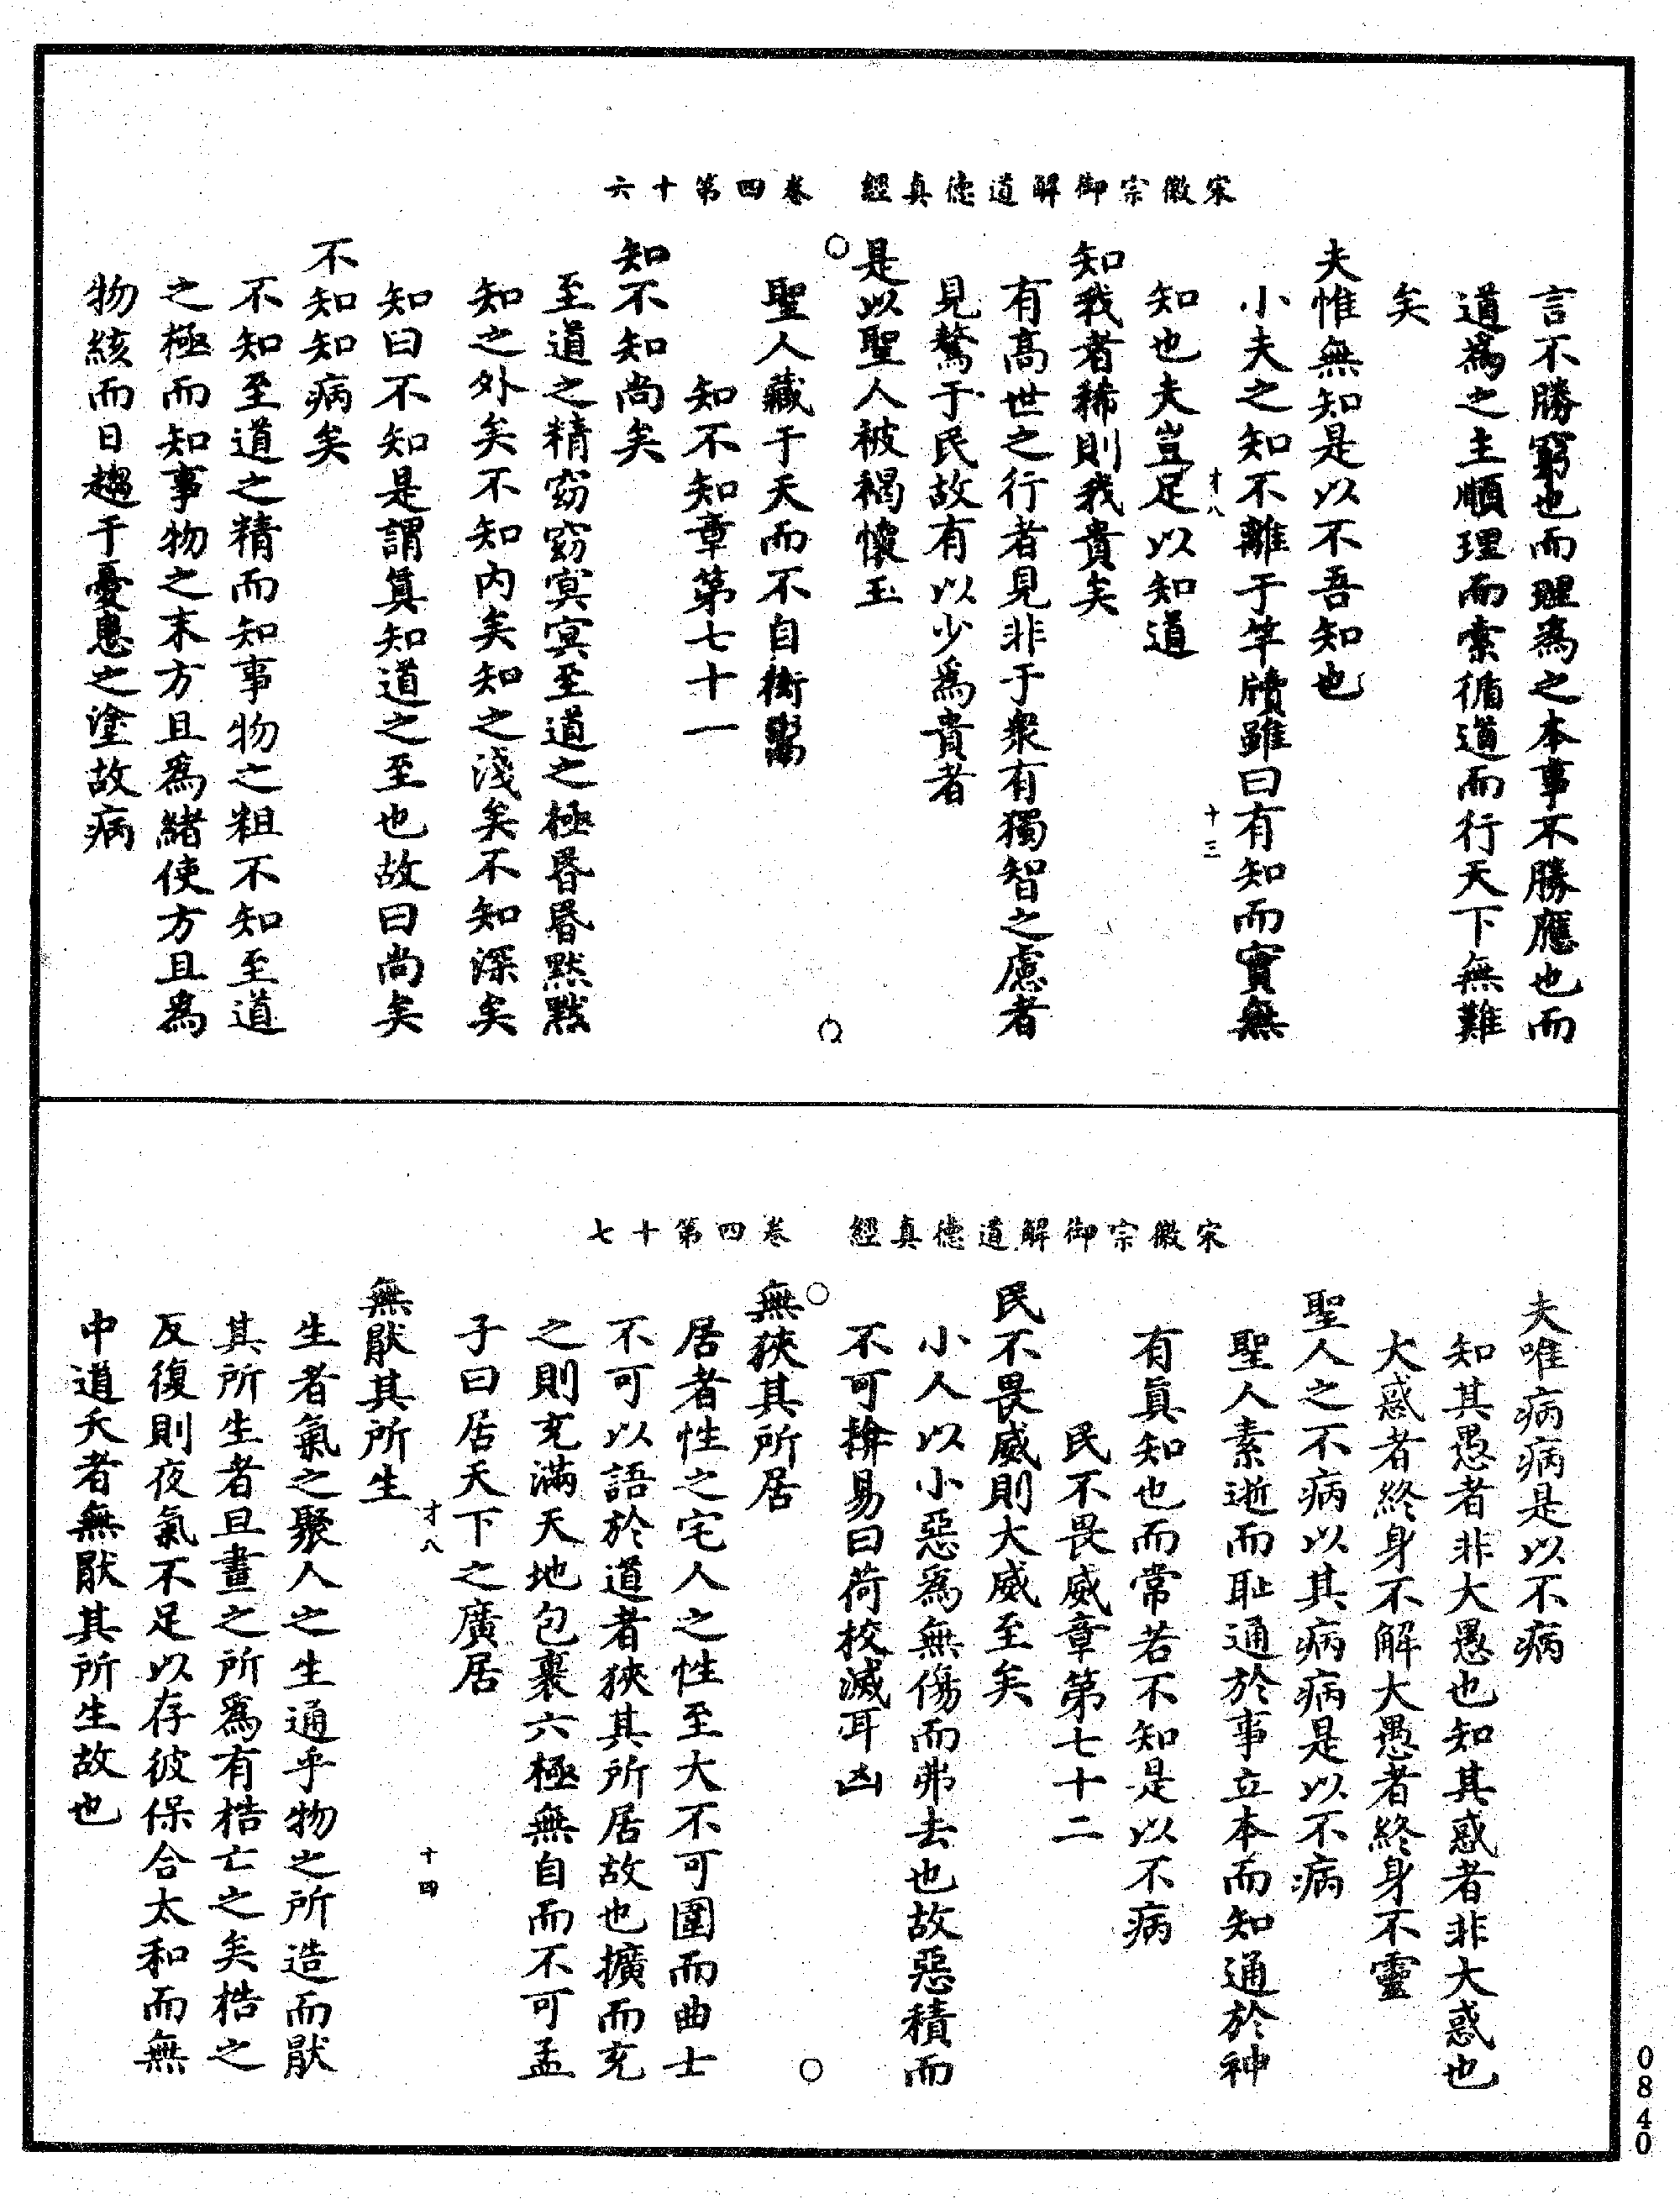 宋徽宗御解道德真經　卷四第十六
言不勝窮也而理為之本事不勝應也而
道為之主順理而索循道而行天下無難
矣
夫惟無知是以不吾知也
小夫之知不離于竿牘雖曰有知而實無
才八　十三
知也夫豈足以知道
知我者稀則我貴矣
有高世之行者見非于眾有獨智之慮者
見驁于民故有以少為貴者
是以聖人被褐懷玉
聖人藏于天而不自衒鬻
知不知章第七十一
知不知尚矣
至道之精窈窈冥冥至道之極昏昏默默
知之外矣不知內矣知之淺矣不知深矣
知曰不知是謂真知道之至也故曰尚矣
不知知病矣
不知至道之精而知事物之粗不知至道
之極而知事物之末方且為緒使方且為
物絯而日趨于憂患之塗故病
宋徽宗御解道德真經　卷四第十七
夫唯病病是以不病
知其愚者非大愚也知其惑者非大惑也
大惑者終身不解大愚者終身不靈
聖人之不病以其病病是以不病
聖人素逝而恥通於事立本而知通於神
有真知也而常若不知是以不病
民不畏威章第七十二
民不畏威則大威至矣
小人以小惡為無傷而弗去也故惡積而
不可揜易曰荷校滅耳凶
無狹其所居
居者性之宅人之性至大不可圍而曲士
不可以語於道者狹其所居故也擴而充
之則充滿天地包裹六極無自而不可孟
子曰居天下之廣居
才八　十四
無厭其所生
生者氣之聚人之生通乎物之所造而厭
其所生者旦晝之所為有梏亡之矣梏之
反復則夜氣不足以存彼保合太和而無
中道夭者無厭其所生故也
0840